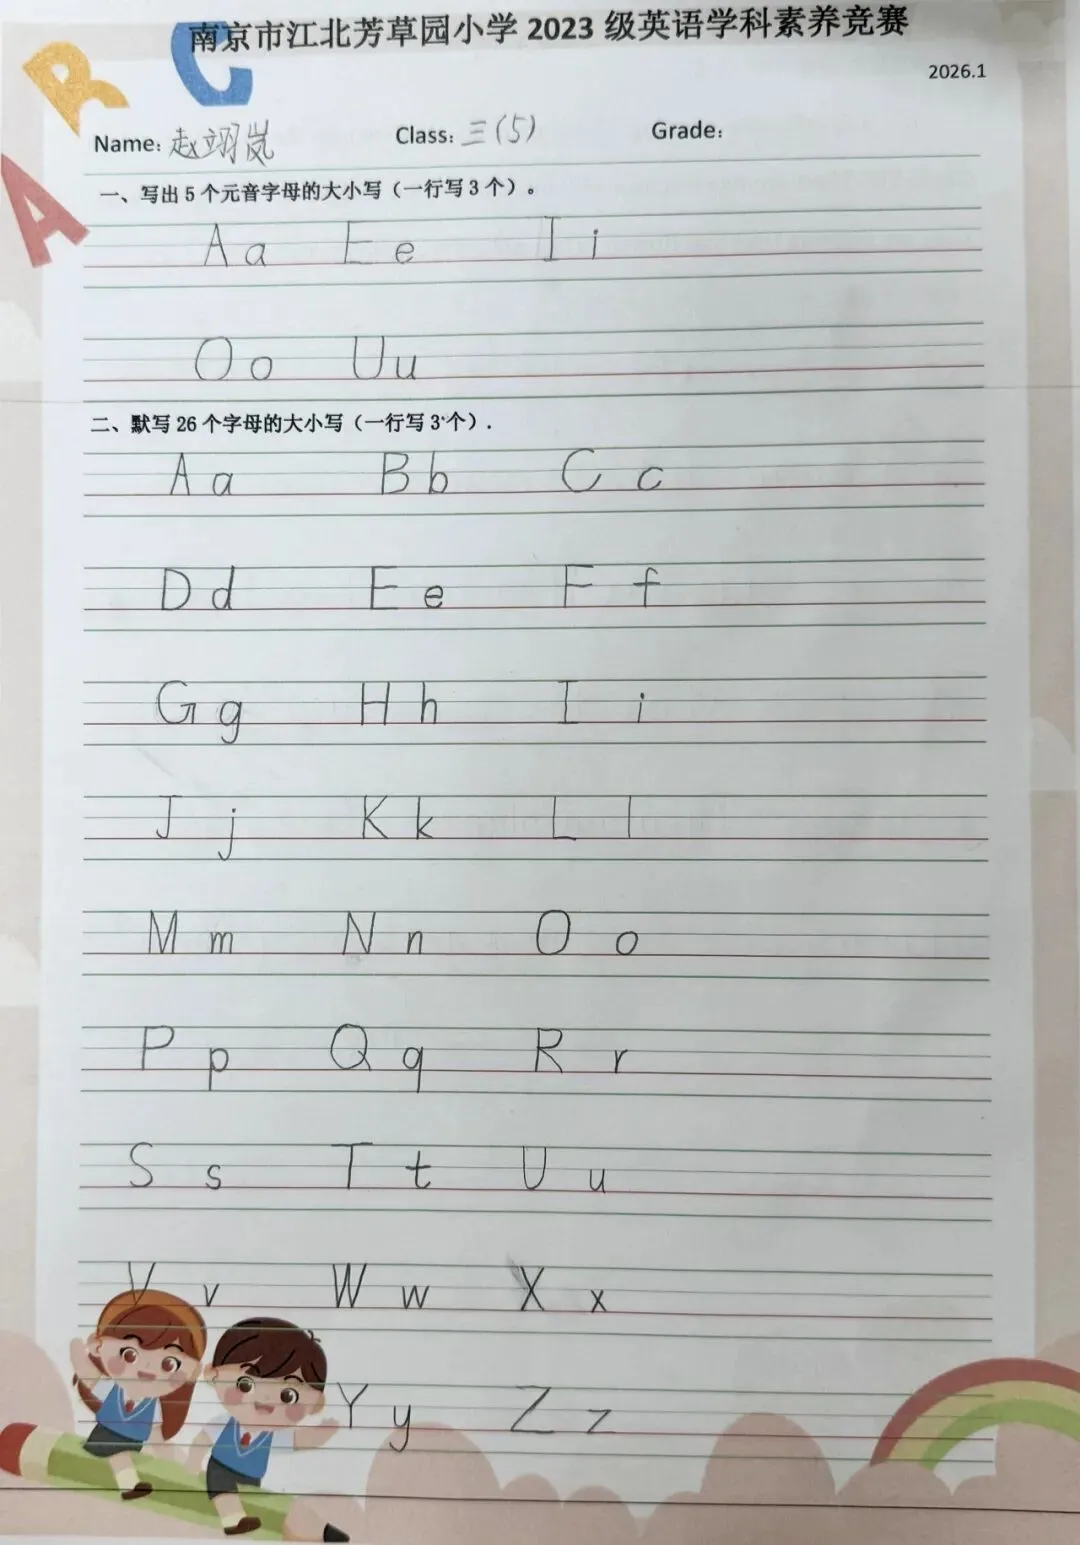 南京市江北芳草园小学 2023 级英语学科素养竞赛
2026.1
Name: 赵翊岚 Class: 三(5) Grade:
一、写出 5 个元音字母的大小写（一行写 3 个）。
A a E e I i
O o U u
二、默写 26 个字母的大小写（一行写 3 个）.
A a B b C c
D d E e F f
G g H h I i
J j K k L l
M m N n O o
P p Q q R r
S s T t U u
V v W w X x
Y y Z z